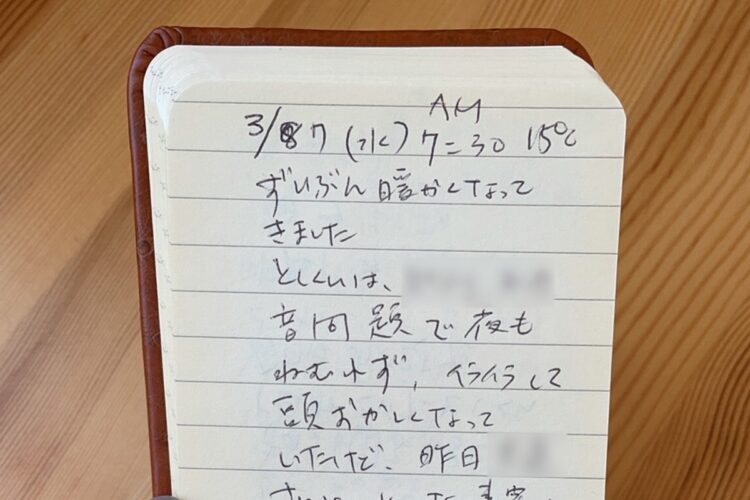 AM
3/7 (水) 7=30 15℃
ずいぶん暖かくなって
きました
としくいは、
音問題で夜も
ねむれず、イライラして
頭おかしくなって
いたけど、昨日